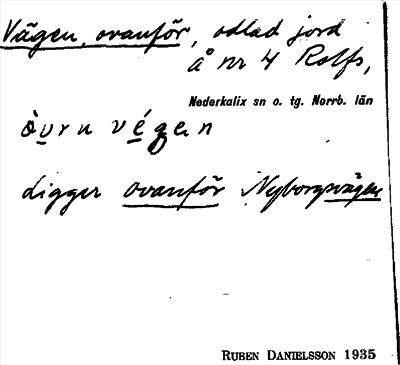 Vägen, ovanför, odlad jord
å nr 4 Rolfs,
Nederkalix sn o. tg. Norrb. län
òvrn végen
ligger ovanför Nyborgsvägen
RUBEN DANIELSSON 1935